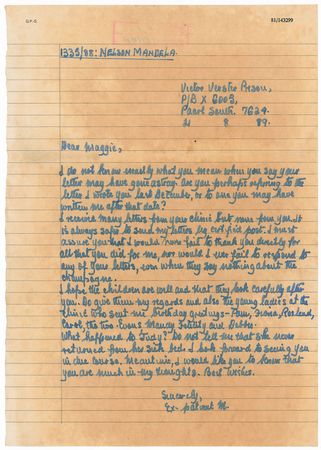 G.P.-S
81/143299
1335/88: NELSON MANDELA.
Victor Verster Prison,
P/B X 6005,
Paarl South. 7624.
21 8 89.
Dear Maggie,
I do not know exactly what you mean when you say your
letter may have gone astray. Are you perhaps referring to the
letter I wrote you last December, or to one you may have
written me after that date?
I receive many letters from your clinic but none from you. It
is always safer to send my letters by certified post. I must
assure you that I would never fail to thank you directly for
all that you did for me nor would I ever fail to respond to
any of your letters, even when they say nothing about the
champagne.
I hope the children are well and that they look carefully after
you. Do give them my regards and also the young ladies at the
clinic who sent me birthday greetings - Pam, Fiona, Rosland,
Carol, the two Evans, Mandy, and Debbie.
What happened to Judy? Do not tell me that she never
returned from her sick bed. I look forward to seeing you
in due course. Meantime, I would like you to know that
you are much in my thoughts. Best wishes.
Sincerely,
Ex-patient M.